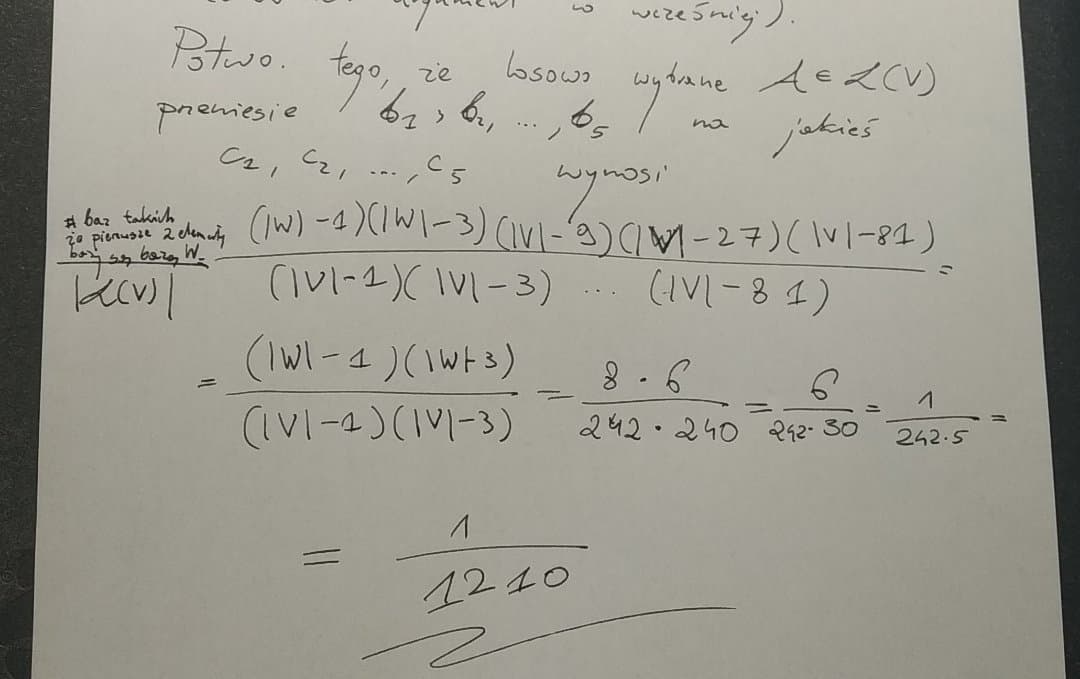 w wcześniej).
Pstwo. tego, że losowo wybrane A ∈ L(V)
przeniesie b₁, b₂, ..., b₅ na jakieś
c₁, c₂, ..., c₅ wynosi
# baz takich
że pierwsze 2 elementy
bazy są bazą W
|L(V)|
(|W|-1)(|W|-3)(|V|-9)(|V|-27)(|V|-81)
(|V|-1)(|V|-3) ... (|V|-81)
=
= (|W|-1)(|W|-3)
(|V|-1)(|V|-3)
= 8 · 6
242 · 240
= 6
242·30
= 1
242·5
=
= 1
1210